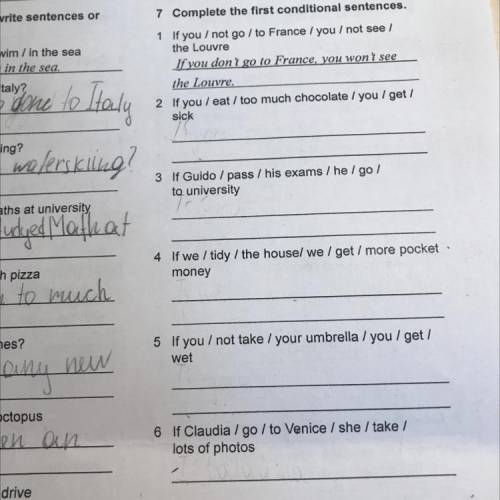 write sentences or
wim / in the sea
in the sea.
taly?
done to Italy
ing?
waterskiing?
aths at university
Math at
h pizza
to much
nes?
any new
octopus
an
drive
7 Complete the first conditional sentences.
1 If you / not go / to France / you / not see /
the Louvre
If you don't go to France, you won't see
the Louvre.
2 If you / eat / too much chocolate / you / get /
sick
3 If Guido / pass / his exams / he / go /
to university
4 If we / tidy / the house/ we / get / more pocket
money
5 If you / not take / your umbrella / you / get /
wet
6 If Claudia / go / to Venice / she / take /
lots of photos